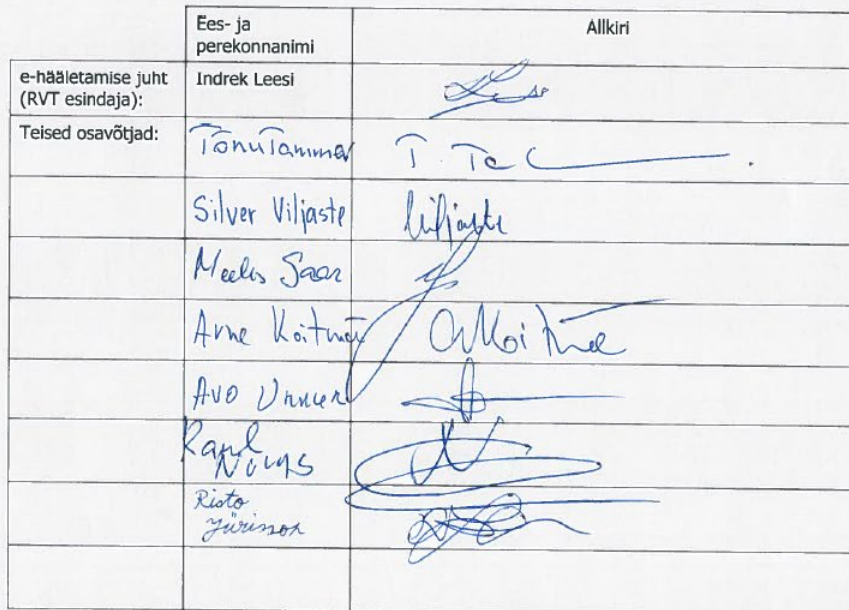 Ees- ja
perekonnanimi
Allkiri
e-hääletamise juht
(RVT esindaja):
Indrek Leesi
Teised osavõtjad:
Tõnu Tammer
T. Ta
Silver Viljaste
Viljaste
Meelis Saar
Arne Koitmäe
AKoitmäe
Avo
Raul
Risto
Jürisson